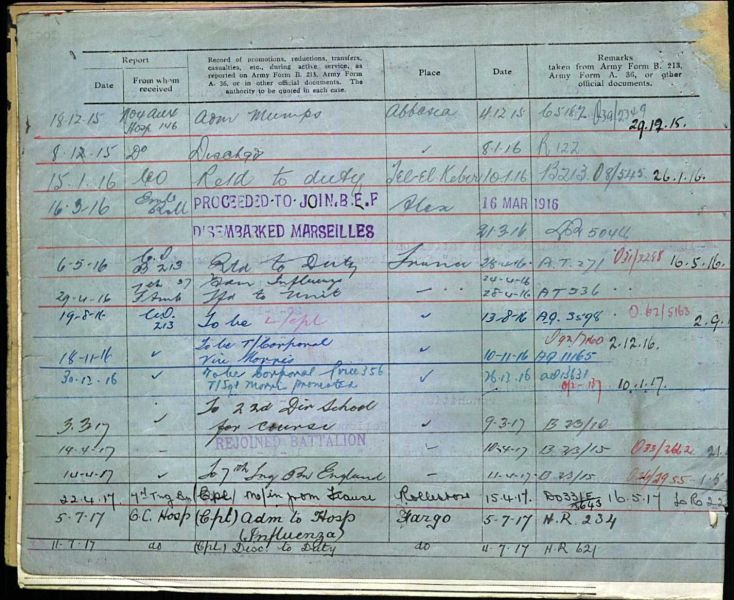 Report
Date
From whom received
Record of promotions, reductions, transfers, casualties, etc., during active service, as reported on Army Form B. 213, Army Form A. 36, or in other official documents. The authority to be quoted in each case.
Place
Date
Remarks
taken from Army Form B. 213, Army Form A. 36, or other official documents.
18.12.15 Hosp Adm Mumps Abbasia 4.12.15 29.12.15.
8.12.15 Do Dischgd ✓ 8/1/16 R 122
15.1.16 CO Retd to duty Tel-El-Kebir 10.1.16 B213 26.1.16.
16.3.16 PROCEEDED TO JOIN.B.E.F Alex 16 MAR 1916
DISEMBARKED MARSEILLES 21.3.16
6-5-16 C.O. B 213 Rtd to Duty France 28-4-16 A.T. 271 10.5.16.
29-4-16 Influenza to Unit 24-4-16 28-4-16 AT 336
19-8-16 C.O. 213 To be L/Cpl ✓ 13-8-16 A.Q. 3598 2.9.
18-11-16 ✓ To be T/Corporal Vice Morris ✓ 10-11-16 AQ 11165 2.12.16.
30-12-16 ✓ To be Corporal Vice 356 T/Sgt Morris promoted ✓ 26.12.16 10.1.17.
3.3.17 ✓ To 2nd Div School for course ✓ 9-3-17 B 23/10
19-4-17 – REJOINED BATTALION – B 23/15
14-4-17 ✓ To 7th Tng Bn England – 11-4-17 B 23/15
22.4.17 7th Tng Bn (Cpl) M/in from France Rollestone 15.4.17. 16.5.17
5-7-17 G.C. Hosp (Cpl) Adm to Hosp (Influenza) Fargo 5-7-17 H.R. 234
11-7-17 do (Cpl) Disc. to Duty do 11-7-17 H.R 621